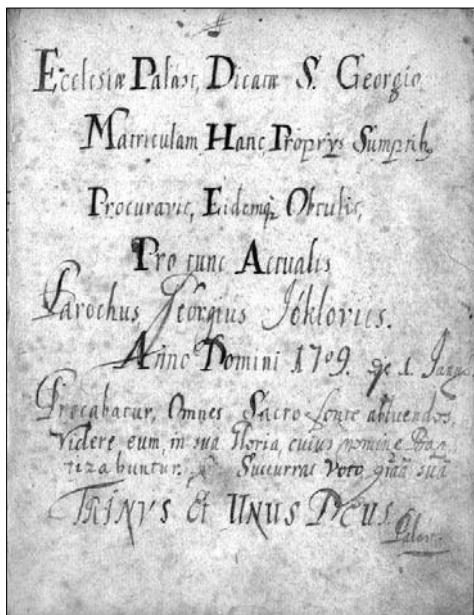 Ecclesiæ Palast, Dicatæ S. Georgio
Matriculam Hanc Proprys Sumptib,
Procuravit, Eidemq; Obtulit,
Pro tunc Actualis
Parochus Georgius Jóklovics.
Anno Domini 1709. 1. Janu
Precabatur, Omnes Sacro fonte abluendos,
Videre eum, in sua Gloria, cuius nomine Bap
tizabuntur. Succurrat Voto suâ
TRINVS Et UNUS DEUS.